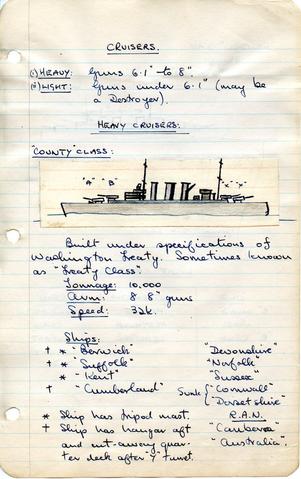 CRUISERS.
(i) HEAVY: Guns 6·1" to 8".
(ii) LIGHT: Guns under 6·1" (may be
a Destroyer).
HEAVY CRUISERS:
"COUNTY" CLASS:
"A" "B" "X" "Y"
Built under specifications of
Washington Treaty. Sometimes known
as "Treaty Class".
Tonnage: 10,000
Arm: 8 8" guns
Speed: 32k.
Ships:
† * "Berwick" "Devonshire"
† * "Suffolk" "Norfolk"
* "Kent" "Sussex"
† "Cumberland" Sunk { "Cornwall"
"Dorsetshire"
* Ship has tripod mast. R.A.N.
† Ship has hangar aft "Canberra"
and cut-away quar- "Australia".
ter deck after Y turret.